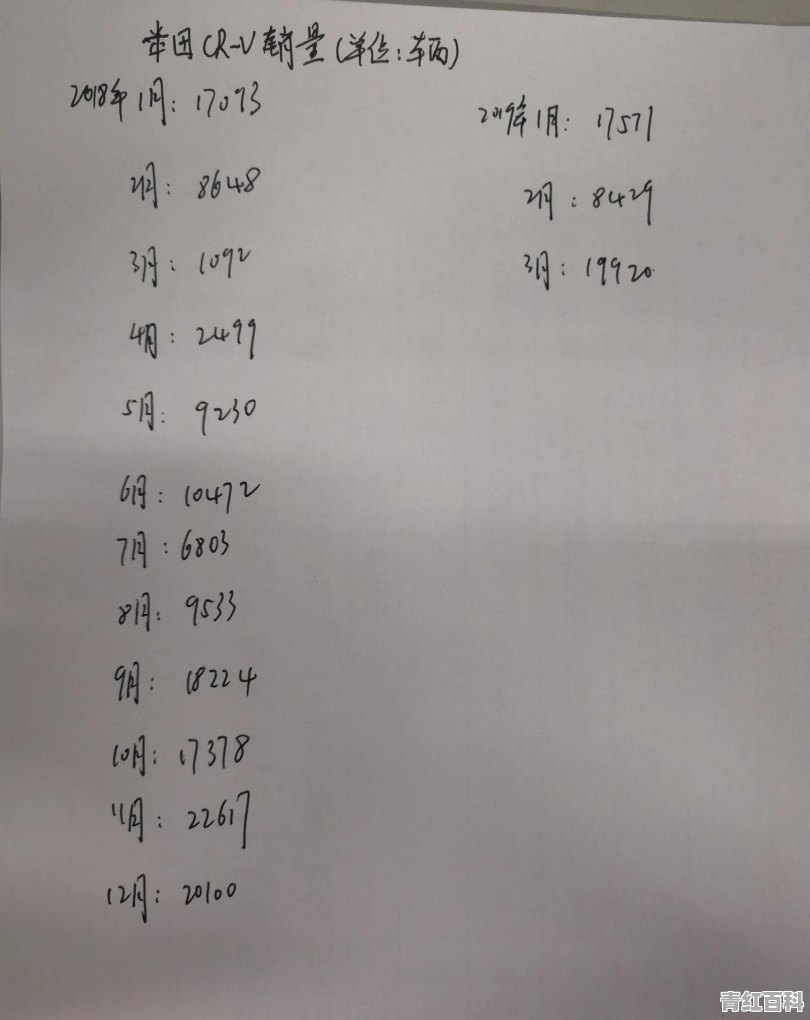 本田CR-V销量(单位:车两)
2018年1月:17093
2月:8648
3月:1092
4月:2499
5月:9230
6月:10472
7月:6803
8月:9533
9月:18224
10月:17378
11月:22617
12月:20100
2019年1月:17571
2月:8429
3月:19920
青红百科